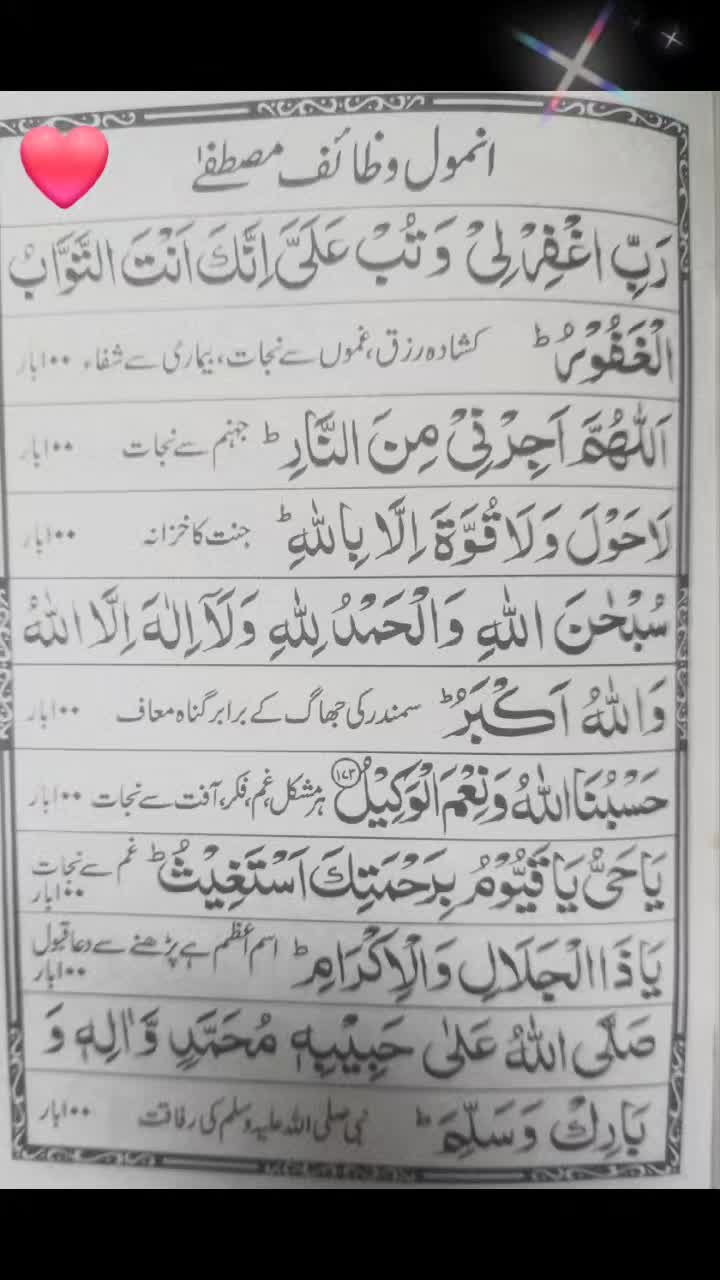 انمول وظائف مصطفےٰ
رَبِّ اغْفِرْ لِیْ وَتُبْ عَلَیَّ اِنَّكَ اَنْتَ التَّوَّابُ
الْغَفُوْرُ ؕ کشادہ رزق، غموں سے نجات، بیماری سے شفاء ۱۰۰بار
اَللّٰهُمَّ اَجِرْنِیْ مِنَ النَّارِ ؕ جہنم سے نجات ۱۰۰بار
لَا حَوْلَ وَلَا قُوَّةَ اِلَّا بِاللّٰهِ ؕ جنت کا خزانہ ۱۰۰بار
سُبْحٰنَ اللّٰهِ وَالْحَمْدُ لِلّٰهِ وَلَآ اِلٰهَ اِلَّا اللّٰهُ
وَاللّٰهُ اَكْبَرُ ؕ سمندر کی جھاگ کے برابر گناہ معاف ۱۰۰بار
حَسْبُنَا اللّٰهُ وَنِعْمَ الْوَكِیْلُ ۱۷۳ ہر مشکل، غم، فکر، آفت سے نجات ۱۰۰بار
یَا حَیُّ یَا قَیُّوْمُ بِرَحْمَتِكَ اَسْتَغِیْثُ ؕ غم سے نجات ۱۰۰بار
یَا ذَا الْجَلَالِ وَالْاِكْرَامِ ؕ اسم اعظم ہے پڑھنے سے دعا قبول ۱۰۰بار
صَلَّی اللّٰهُ عَلٰی حَبِیْبِهٖ مُحَمَّدٍ وَّاٰلِهٖ وَ
بَارِكْ وَسَلِّمْ ؕ نبی صلی اللہ علیہ وسلم کی رفاقت ۱۰۰بار